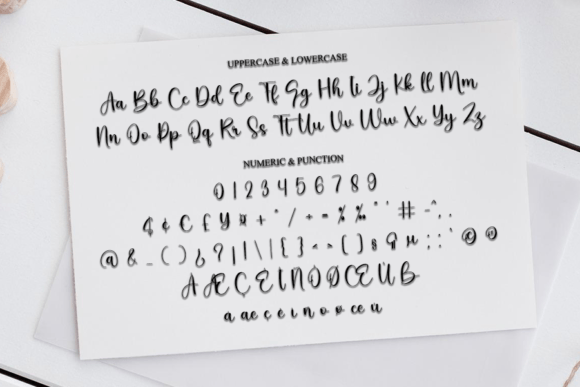 UPPERCASE & LOWERCASE
Aa Bb Cc Dd Ee Ff Gg Hh Ii Jj Kk Ll Mm
Nn Oo Pp Qq Rr Ss Tt Uu Vv Ww Xx Yy Zz
NUMERIC & PUNCTION
0 1 2 3 4 5 6 7 8 9
$ ¢ € £ ¥ ¤ + * / + = % ‰ " ' # - ^ , .
@ & _ ( ) ¿ ? ! | \ | { } « » [ ] § 9 µ ; : ` © ®
A Æ Ç E I N O Ø Œ U B
a ae ç e i n o ø œ u